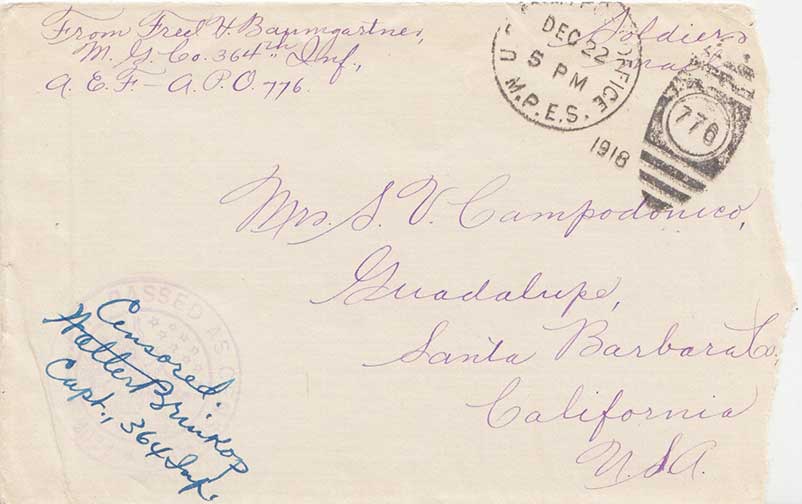 From Fred H. Baumgartner,
M. G. Co. 364th Inf.,
A. E. F. – A. P. O. 776.
Soldiers
mail
OFFICE
DEC 22
5 PM
U. M.P.E.S.
1918
776
Mrs. S. V. Campodonico,
Guadalupe,
Santa Barbara Co.,
California
U. S. A.
PASSED AS
Censored.
Walter Brinkop
Capt., 364 Inf.